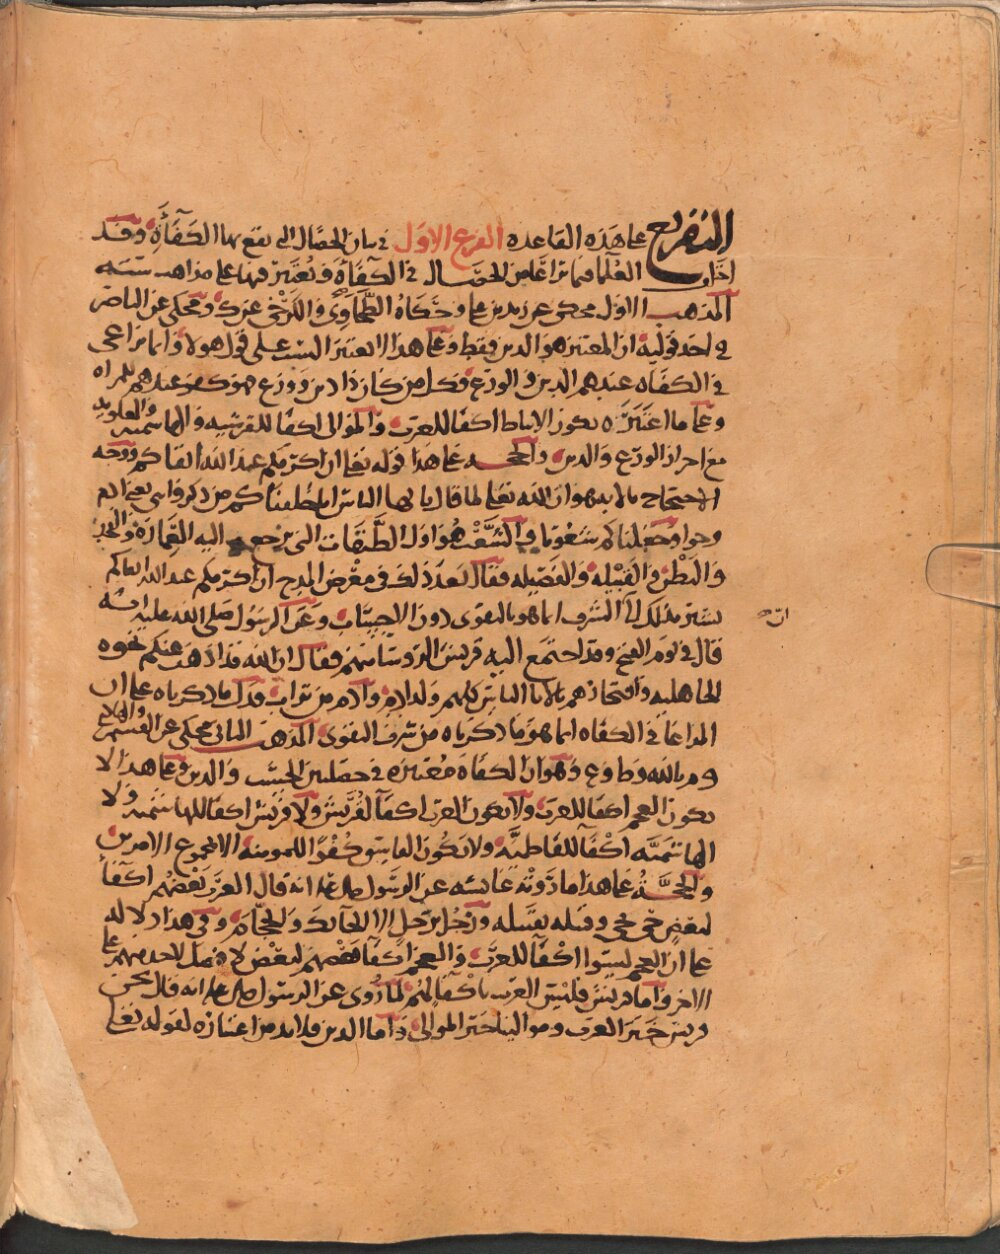 التفريع على هذه القاعدة الفرع الاول في بيان الخصال التي تقع بها الكفاءة وقد
اختلف العلما فيما يراعى من الخصال في الكفاءة وتعتبر فيها على مذاهب ستة
المذهب الاول محكي عن زيد بن علي وحكاه الطحاوي والكرخي عن ك ومحكي عن الناصر
في احد قوليه ان المعتبر هو الدين فقط وعلى هذا لا يعتبر النسب على قول هولا وانما يراعى
في الكفاه عندهم الدين والورع فكل من كان ذا دين وورع فهو كفو عندهم للمراه
وعلى ما اعتبروه يكون الانباط اكفا للعرب والموالى اكفا للقرشيه والهاشميه والعلويه
مع احراز الورع والدين والحجه على هذا قوله تعلى ان اكرمكم عند الله اتقاكم ووجه
الاحتجاج بالايه هو ان الله تعلى لما قال يا ايها الناس انا خلقناكم من ذكر وانثى يعني ادم
وحوا وجعلناكم شعوبا والشعب هو اول الطبقات التي يرجع اليه العمارة والفخذ
والبطن والقبيله والفصيله فقال بعد ذلك في معرض المدح ان اكرمكم عند الله اتقاكم
يشير بذلك الى الشرف انما هو بالتقوى دون الاحساب وعن الرسول صلى الله عليه انه
ان
قال في يوم الفتح وقد اجتمع اليه قريش فقال ان الله قد اذهب عنكم نخوه
الجاهليه وافتخارهم بالابا الناس كلهم ولد ادم وادم من تراب فدل ما ذكرناه على ان
المراعا في الكفاه انما هو ما ذكرناه من شرف التقوى المذهب الثاني محكي عن القسم والهادي
وم بالله وط وع وهو ان الكفاة معتبرة في خصلتين الحسب والدين وعلى هذا لا
يكون العجم اكفا للعرب ولا يكون العرب اكفآ لقريش ولا قريش اكفا للهاشميه ولا
الهاشميه اكفآ للفاطميه ولا يكون الفاسق كفؤا للمومنه الا بمجموع الامرين
والحجة على هذا ما روته عايشه عن الرسول صلى الله عليه انه قال العرب بعضهم اكفآ
لبعض حي بحي وقبيله بقبيله ورجل برجل الا الحايك والحجام وفي هذا دلاله
على ان العجم ليسوا اكفآ للعرب والعجم اكفآ بعضهم لبعض لا فضل لاحد منهم على
الاخر واما قريش فليس العرب باكفآ لهم لما روي عن الرسول صلى الله عليه انه قال نحن
قريش خير العرب وموالينا خير الموالي واما الدين فلا بد من اعتباره لقوله تعلى